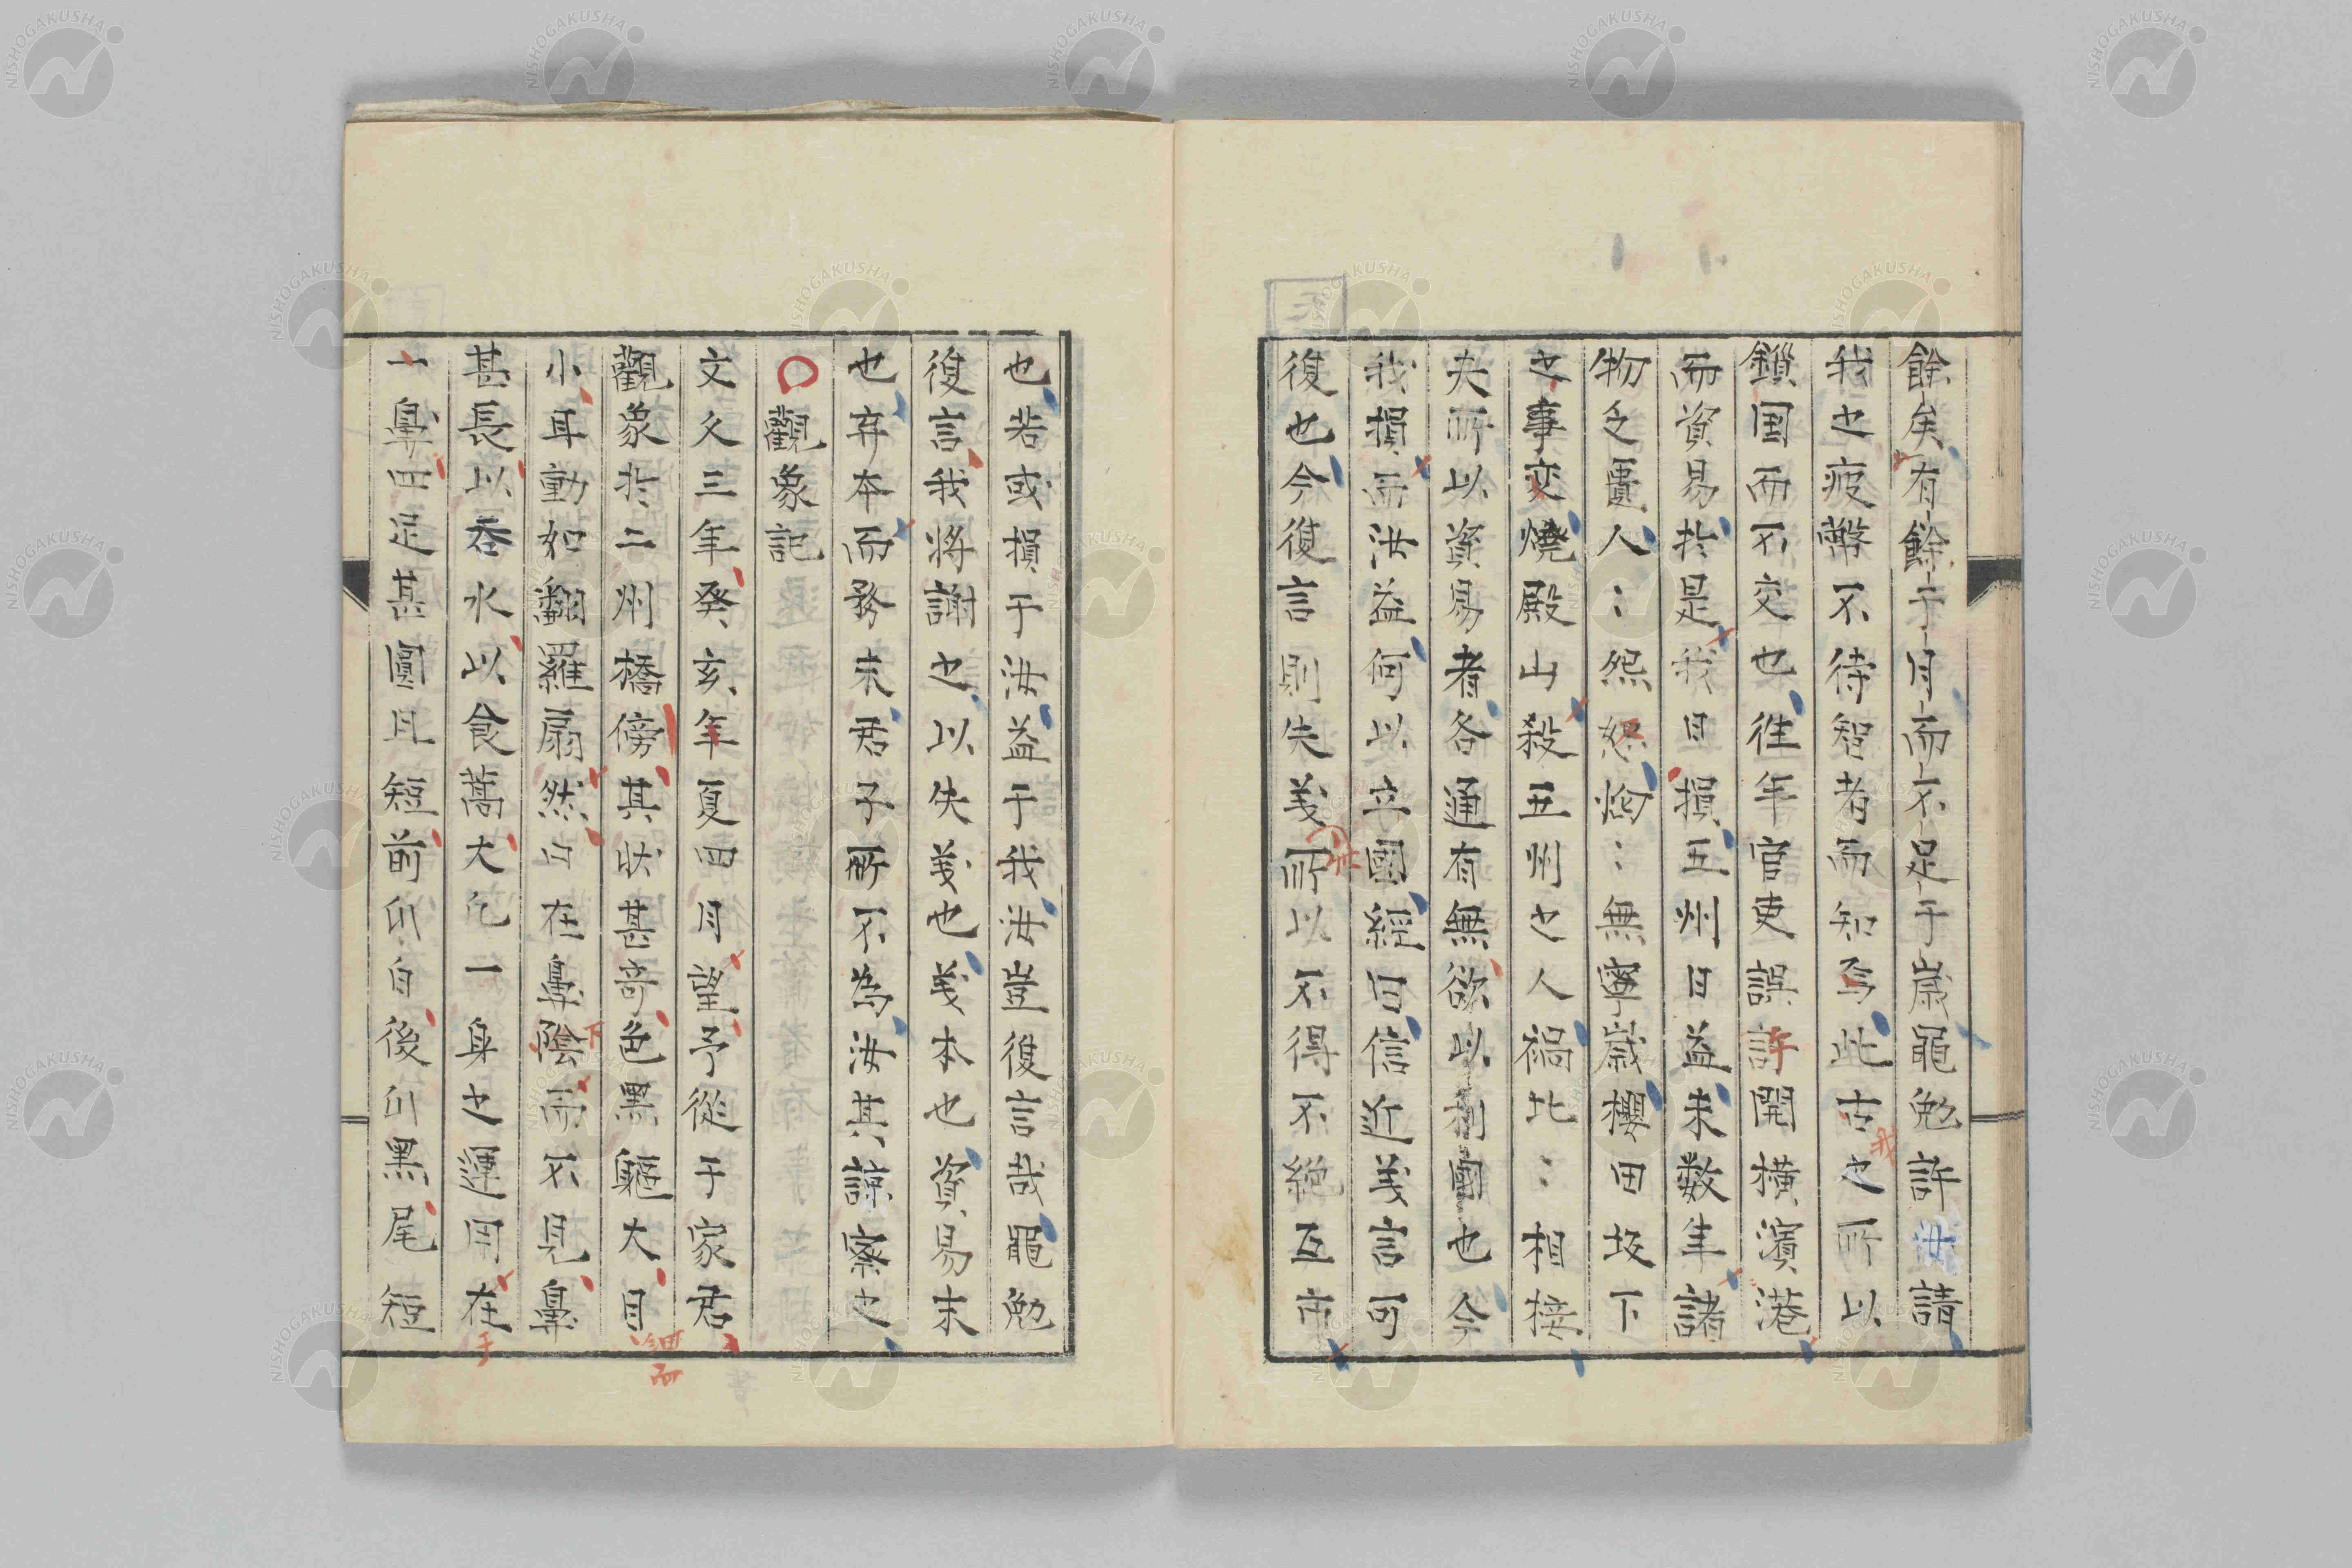 餘矣有餘于月而不足于歳黽勉許汝請
我之疲弊不待智者而知焉此古之所以
我
鎖国而不交也往年官吏誤許開横濱港
而資易於是我日損五州日益未数年諸
物乏匱人〻怨怒恟〻無寧歳櫻田坂下
之事変燒殿山殺五州之人禍比〻相接
夫所以資易者各通有無欲以利國也今
我損而汝益何以立國經曰信近義言可
復也今復言則失義所以不得不絶互市
也若或損于汝益于我汝豈復言哉黽勉
復言我将謝之以失義也義本也資易末
也弃本而務末君子所不為汝其諒察之
觀象記
文久三年癸亥年夏四月望予從于家君
觀象於二州橋傍其状甚奇色黑軀大目
細而
小耳動如翻羅扇然口在鼻陰而不見鼻
下
甚長以呑水以食蒿大凡一身之運用在
于
一鼻四足甚圓且短前爪白後爪黑尾短
NISHOGAKUSHA